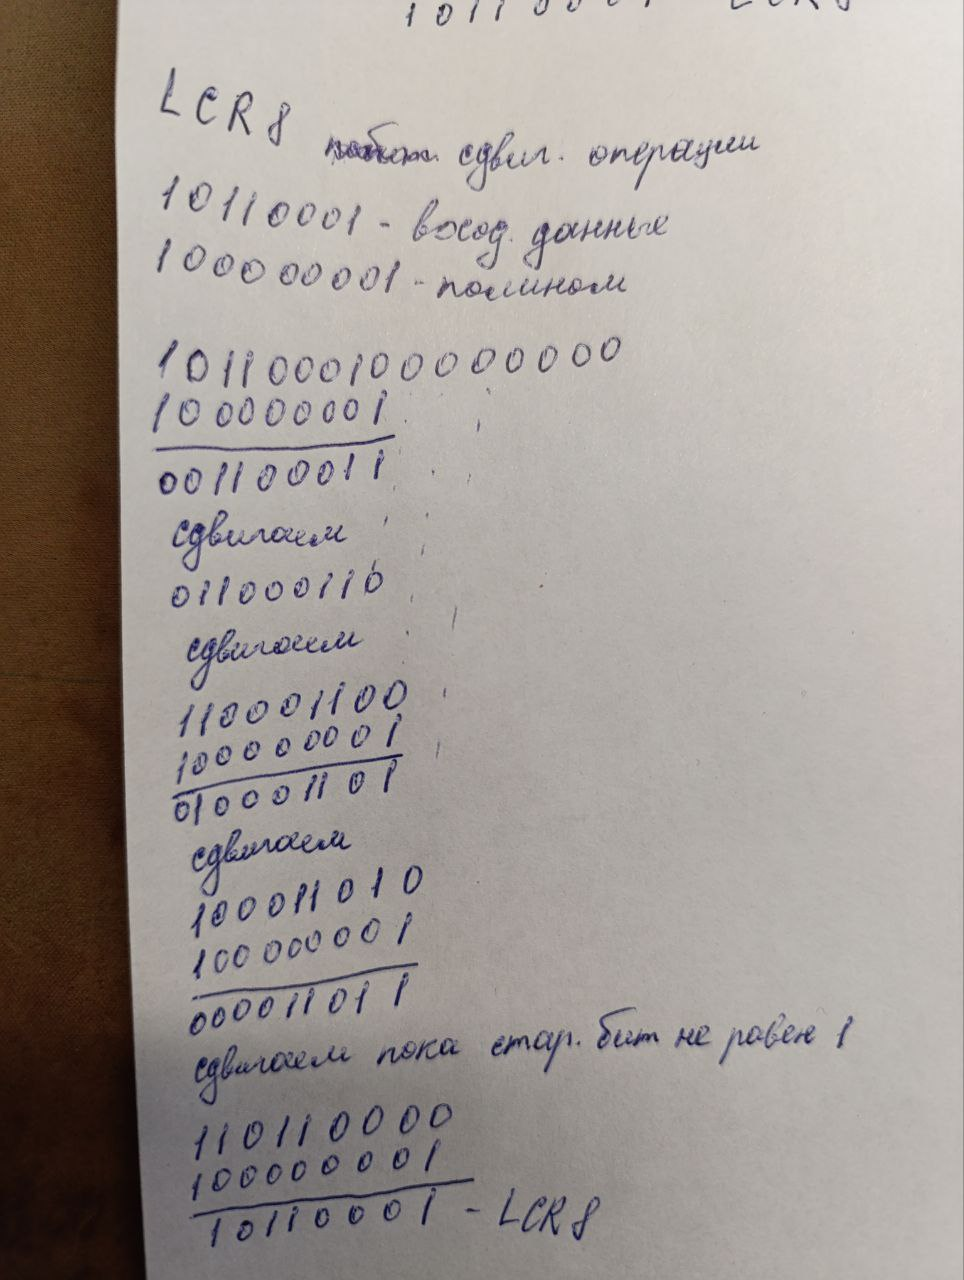 LCR 8
сдвиг. операции
10110001 - вход. данные
100000001 - полином
1011000100000000
100000001
001100011
сдвигаем
011000110
сдвигаем
110001100
100000001
010001101
сдвигаем
100011010
100000001
000011011
сдвигаем пока стар. бит не равен 1
110110000
100000001
10110001 - LCR 8